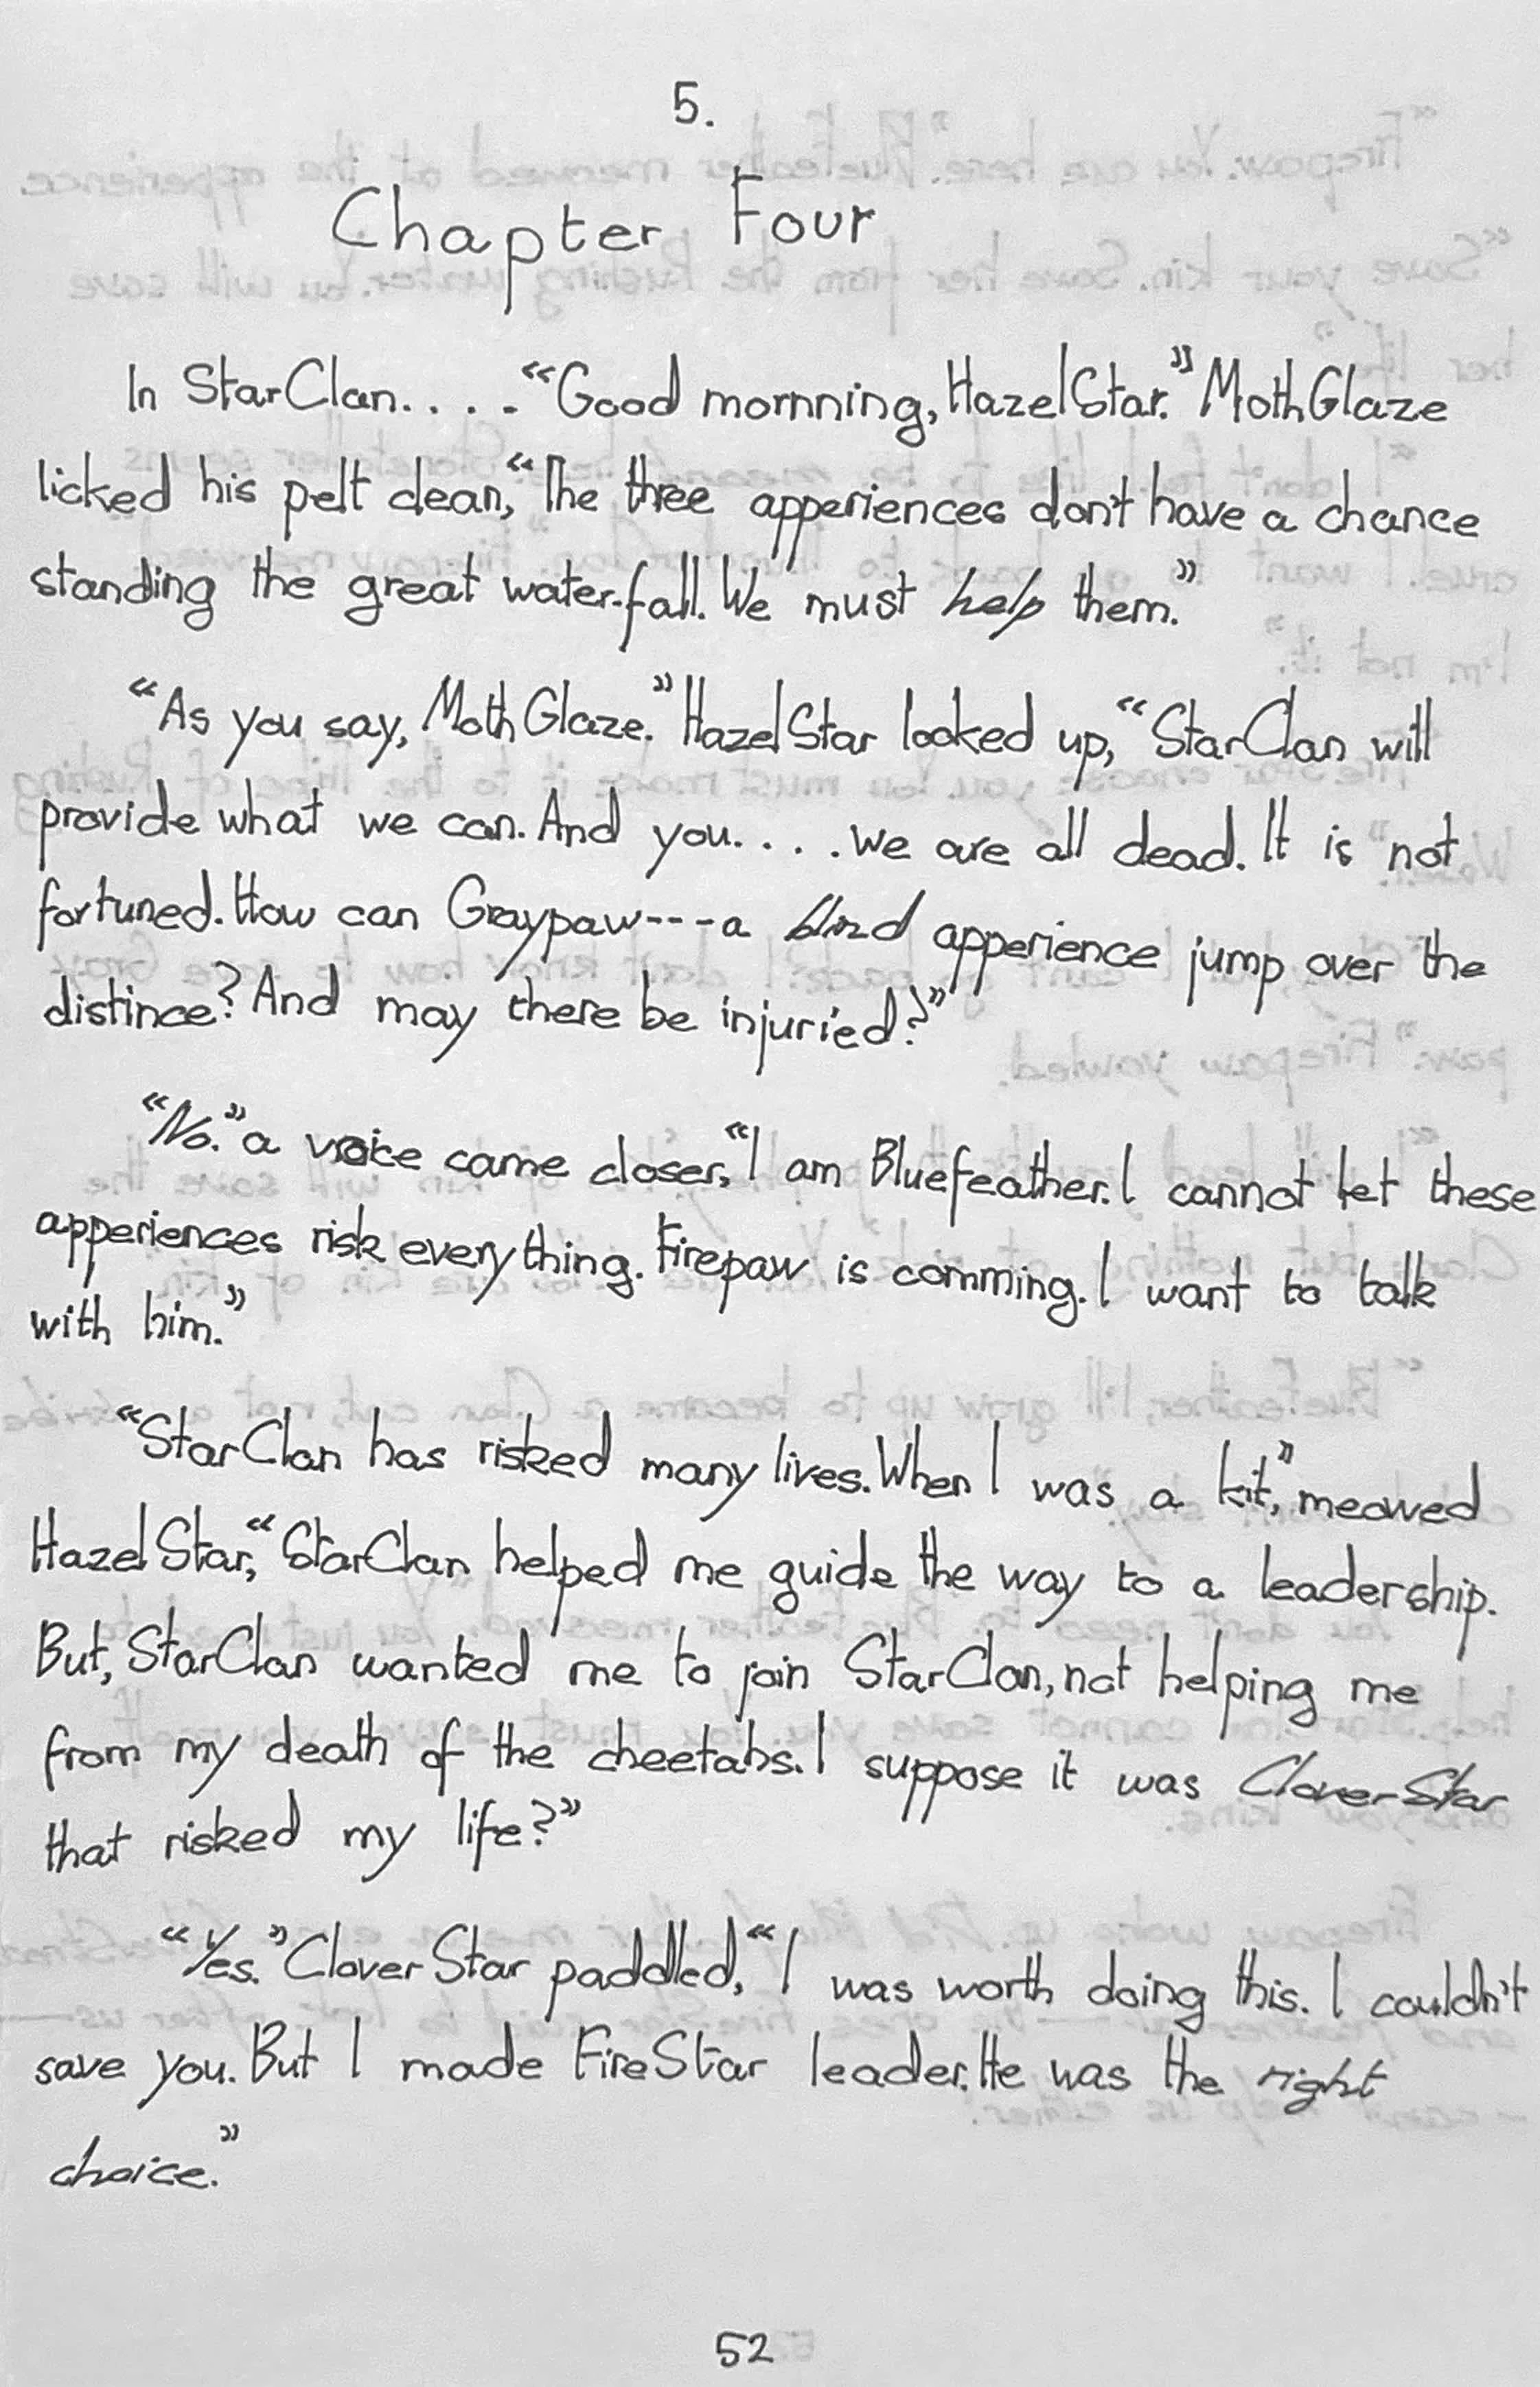 5.
Chapter Four
In StarClan.... "Good mornning, HazelStar." MothGlaze
licked his pelt clean, "The three apperiences don't have a chance
standing the great water-fall. We must help them."
"As you say, MothGlaze." HazelStar looked up, "StarClan will
provide what we can. And you.... we are all dead. It is not
fortuned. How can Graypaw----a blind apperience jump over the
distince? And may there be injuried?"
"No." a voice came closer, "I am Bluefeather. I cannot let these
apperiences risk everything. Firepaw is comming. I want to talk
with him."
"StarClan has risked many lives. When I was a kit," meowed
HazelStar, "StarClan helped me guide the way to a leadership.
But, StarClan wanted me to join StarClan, not helping me
from my death of the cheetahs. I suppose it was CloverStar
that risked my life?"
"Yes." CloverStar paddled, "I was worth doing this. I couldn't
save you. But I made FireStar leader. He was the right
choice."
52